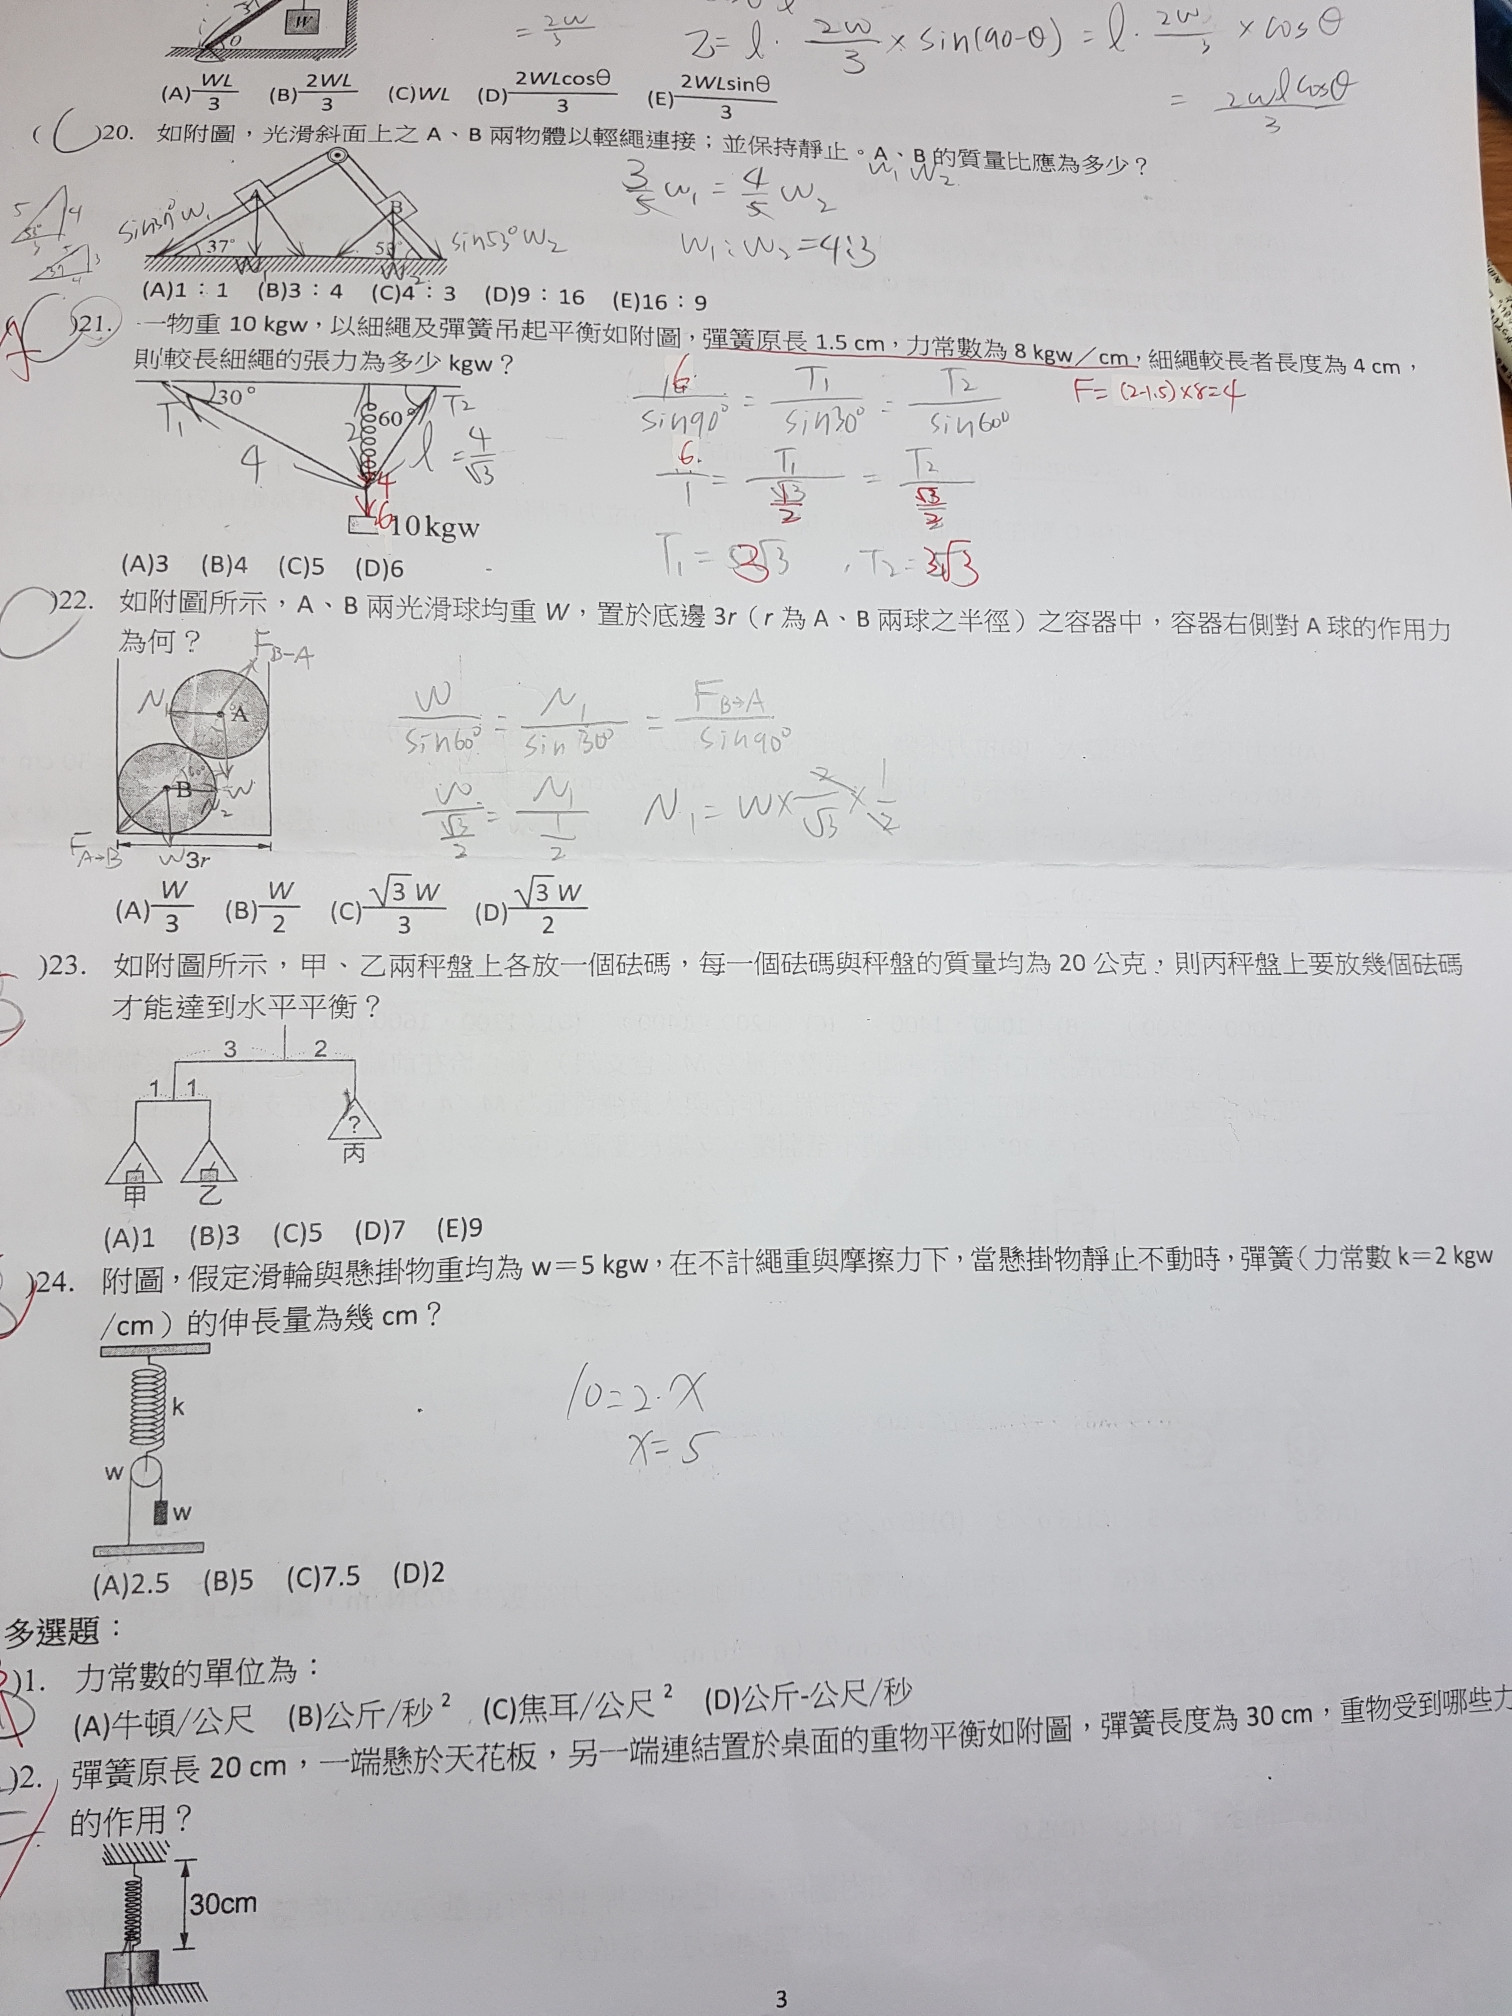 W
θ
= 2W/3
τ= l · 2W/3 × sin(90-θ) = l · 2W/3 × cosθ
= 2Wlcosθ/3
(A) WL/3 (B) 2WL/3 (C)WL (D) 2WLcosθ/3 (E) 2WLsinθ/3
( C )20. 如附圖，光滑斜面上之 A、B 兩物體以輕繩連接；並保持靜止。A、B 的質量比應為多少？
W1 W2
3/5 W1 = 4/5 W2
W1 : W2 = 4:3
5 4 53° 3
5 3 37 4
sin37° W1
A B
37° 53°
sin53° W2
W1 W2
(A)1：1 (B)3：4 (C)4：3 (D)9：16 (E)16：9
)21. 一物重 10 kgw，以細繩及彈簧吊起平衡如附圖，彈簧原長 1.5 cm，力常數為 8 kgw／cm，細繩較長者長度為 4 cm，
則較長細繩的張力為多少 kgw？
30° 60°
T1 T2
4 2 l = 4/√3
4
6
10 kgw
6/sin90° = T1/sin30° = T2/sin60°
F= (2-1.5)×8=4
6/1 = T1/(1/2) = T2/(√3/2)
T1 = 3 , T2 = 3√3
(A)3 (B)4 (C)5 (D)6
)22. 如附圖所示，A、B 兩光滑球均重 W，置於底邊 3r（r 為 A、B 兩球之半徑）之容器中，容器右側對 A 球的作用力
為何？
F B→A
N1 A
B N2 W
F A→B W 3r
W/sin60° = N1/sin30° = F B→A/sin90°
W/(√3/2) = N1/(1/2) N1 = W× 2/√3 × 1/2
(A) W/3 (B) W/2 (C) √3 W/3 (D) √3 W/2
)23. 如附圖所示，甲、乙兩秤盤上各放一個砝碼，每一個砝碼與秤盤的質量均為 20 公克，則丙秤盤上要放幾個砝碼
才能達到水平平衡？
3 2
1 1
?
丙
甲 乙
(A)1 (B)3 (C)5 (D)7 (E)9
)24. 附圖，假定滑輪與懸掛物重均為 w＝5 kgw，在不計繩重與摩擦力下，當懸掛物靜止不動時，彈簧（力常數 k＝2 kgw
/cm）的伸長量為幾 cm？
k
w
w
10=2·x
x=5
(A)2.5 (B)5 (C)7.5 (D)2
多選題：
)1. 力常數的單位為：
(A)牛頓/公尺 (B)公斤/秒² (C)焦耳/公尺² (D)公斤-公尺/秒
)2. 彈簧原長 20 cm，一端懸於天花板，另一端連結置於桌面的重物平衡如附圖，彈簧長度為 30 cm，重物受到哪些力
的作用？
30cm
3